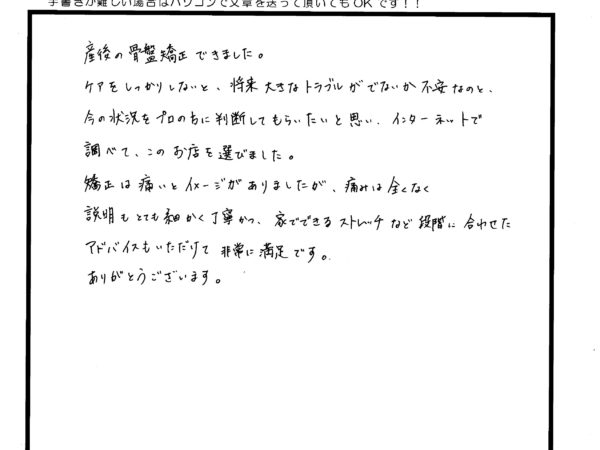 手書きが難しい場合はパソコンで文章を送って頂いてもOKです！！
産後の骨盤矯正できました。
ケアをしっかりしないと、将来大きなトラブルがでないか不安なのと、
今の状況をプロの方に判断してもらいたいと思い、インターネットで
調べて、このお店を選びました。
矯正は痛いとイメージがありましたが、痛みは全くなく
説明もとても細かく丁寧かつ、家でできるストレッチなど段階に合わせた
アドバイスもいただけて非常に満足です。
ありがとうございます。